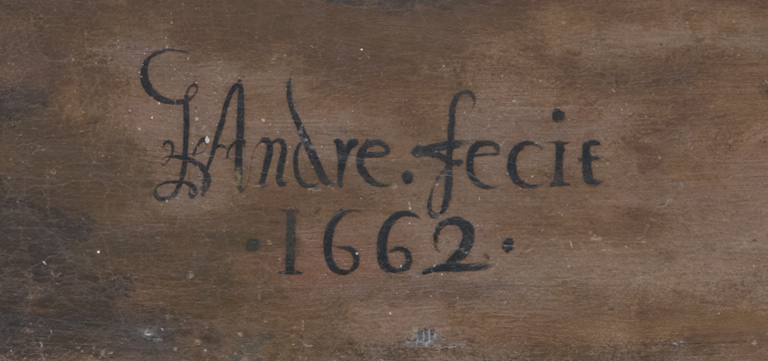 JAndre. fecit
·1662·